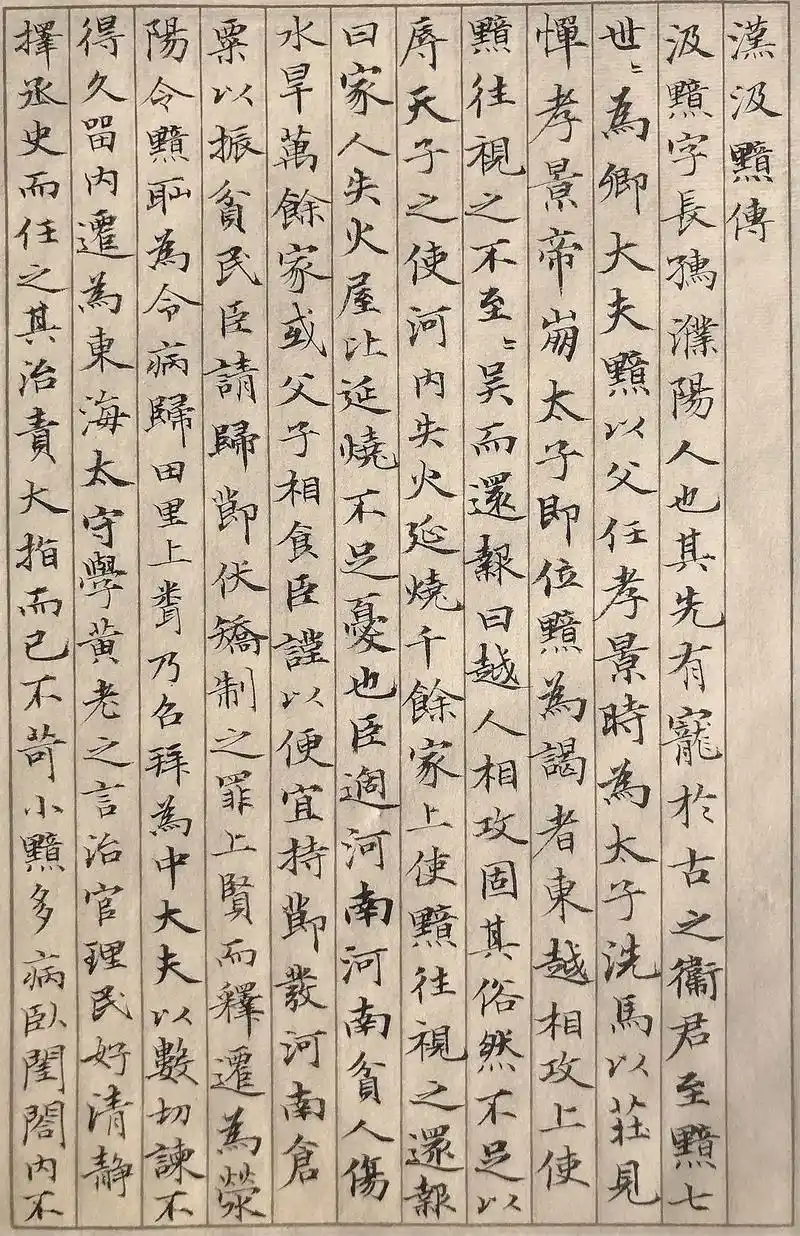 漢汲黯傳
汲黯字長孺濮陽人也其先有寵於古之衞君至黯七
世〻為卿大夫黯以父任孝景時為太子洗馬以莊見
憚孝景帝崩太子即位黯為謁者東越相攻上使
黯往視之不至〻吴而還報曰越人相攻固其俗然不足以
辱天子之使河内失火延燒千餘家上使黯往視之還報
曰家人失火屋比延燒不足憂也臣過河南河南貧人傷
水旱萬餘家或父子相食臣謹以便宜持節發河南倉
粟以振貧民臣請歸節伏矯制之罪上賢而釋遷為滎
陽令黯恥為令病歸田里上聞乃召拜為中大夫以數切諫不
得久留内遷為東海太守學黄老之言治官理民好清静
擇丞史而任之其治責大指而已不苛小黯多病臥閨閤内不